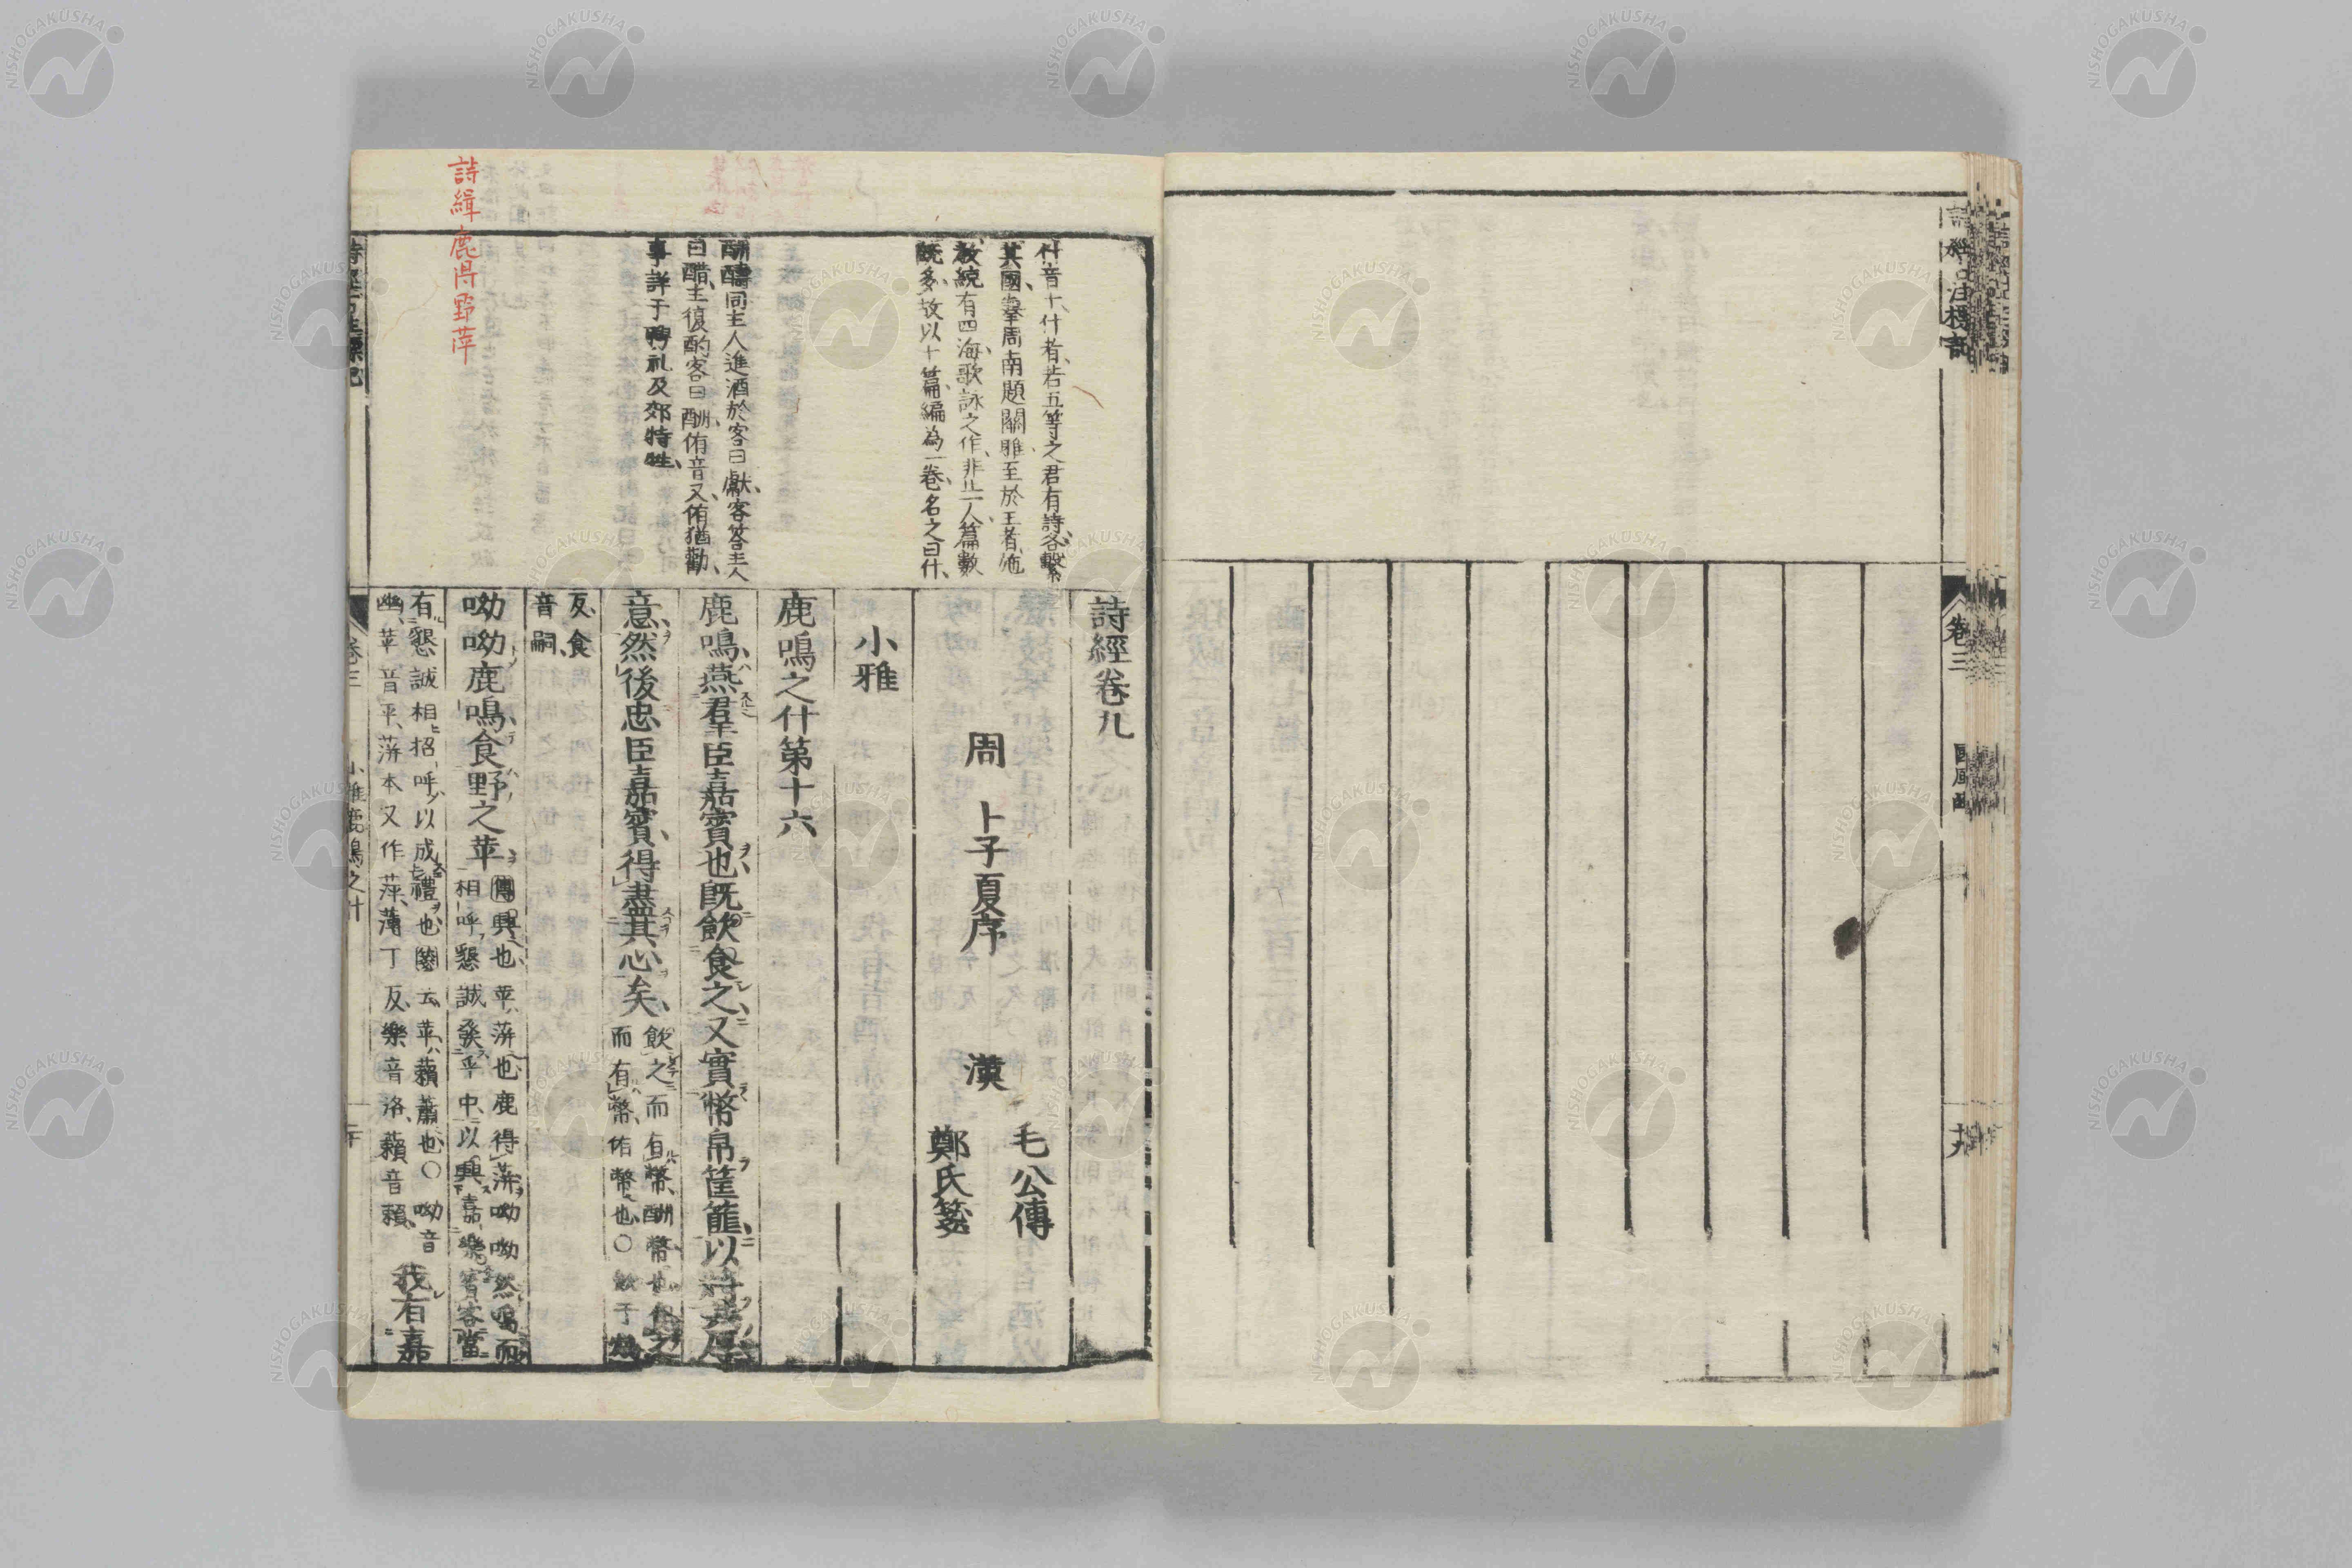 詩經古注標記
卷三
國風豳
十九
詩經卷九
周　卜子夏序
漢　毛公傳
鄭氏箋
小雅
鹿鳴之什第十六
鹿鳴、燕羣臣嘉賓也、既飲食之、又實幣帛筐篚、以將其厚
意、然後忠臣嘉賓、得盡其心矣、
飲之而有幣、酬幣也、食之
而有幣、侑幣也、〇飲于鴆
反、食
音嗣、
呦呦鹿鳴、食野之苹、
傳興也、苹、蓱也、鹿得蓱、呦呦然鳴而
相呼、懇誠發乎中、以興嘉樂賓客、當
有懇誠相招呼、以成禮也、箋云、苹、藾蕭也、〇呦音
幽、苹音平、蓱本又作萍、薄丁反、樂音洛、藾音賴、
我有嘉
什音十、什者、若五等之君有詩、各繫
其國、舉周南題關雎、至於王者、施
教統有四海、歌詠之作、非止一人、篇數
既多、故以十篇編為一卷、名之曰什、
酬醻同主人進酒於客曰獻、客答主人
曰醋、主復酌客曰酬、侑音又、侑猶勸、
事詳于聘礼及郊特牲、
詩緝鹿得野苹
卷三
小雅鹿鳴之什
二十
NISHOGAKUSHA